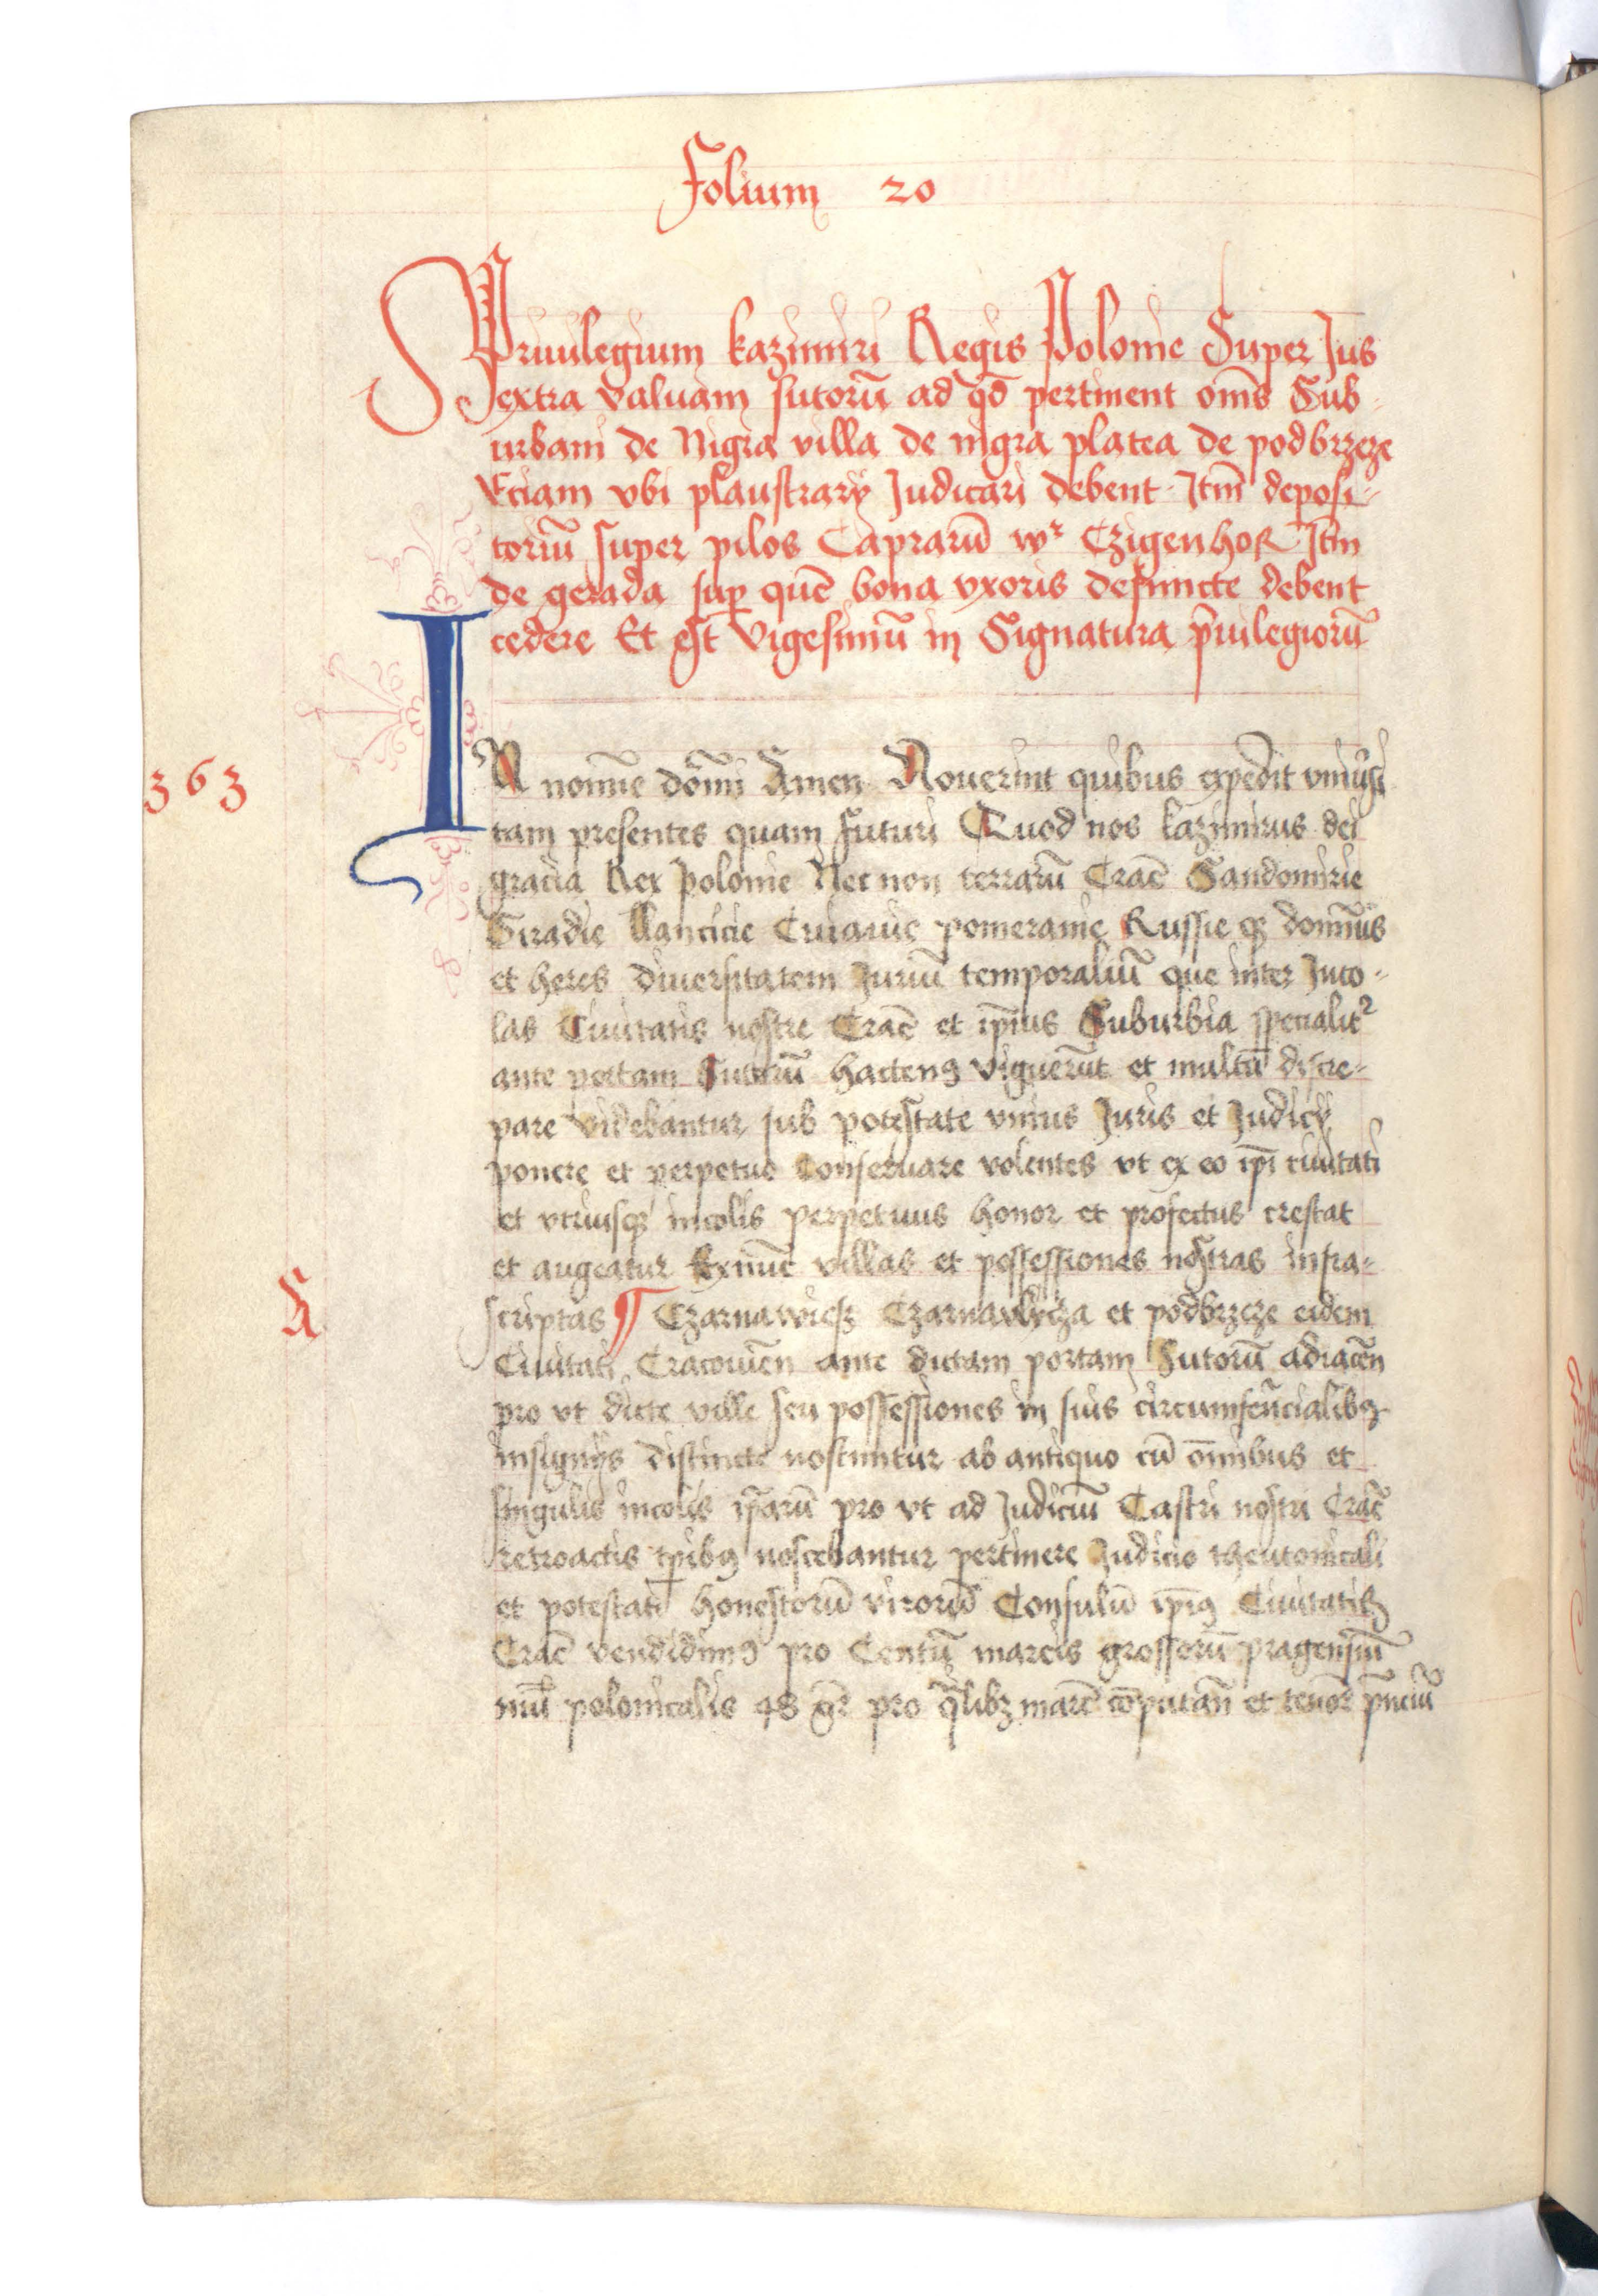 Folium 20
Priuilegium kazimiri Regis Polonie Super Jus
extra valuam sutorū ad qd̄ pertinent om̄s Sub-
urbani de Nigra villa de nigra platea de podbrzeze
Eciam vbi plaustrarij Judicari debent Jtm̄ deposi-
toriū super pilos Caprarū wr Czigenhor Jtm̄
de gerada sup quē bona vxoris defuncte debent
cedere Et est vigesimū in Signatura p̄uilegiorū
IN nomīe domī Amen Nouerint quibus expedit vniu͛si
363
tam presentes quam futuri Quod nos kazimirus dei
gracia Rex polonie Nec non terrarū Crac̄ Sandomirie
Siradie Lancicie Cuiauie pomeranie Russie qȝ domin̄us
et heres diuersitatem Juriū temporaliū que inter Inco-
las Ciuitatis nostre Crac̄ et ip̄ius Suburbia specialit͛
ante portam Sutorū hacten9 viguerūt et multū discre-
pare videbantur sub potestate vnius Juris et Judicij
ponere et perpetuo Conseruare volentes vt ex eo ip̄i ciuitati
et vtriusqȝ incolis perpetuus honor et profectus crescat
et augeatur Exnūc villas et possessiones nostras infra-
A
scriptas ¶ Czarnawiesz Czarnavlycza et podbrzeze eidem
Ciuitati Cracouien̄ ante dictam portam Sutorū adiacen̄
pro vt dicte ville seu possessiones in suis circumferēcialib9
insignijs distincte noscuntur ab antiquo cū om̄nibus et
singulis incolis ip̄arū pro vt ad Judiciū Castri nostri Crac̄
retroactis tp̄ib9 noscebantur pertinere Judicio theutonicali
et potestati honestorū virorū Consulū ip̄i9 Ciuitatis
Crac̄ vendidim9 pro Centū marcis grossorū pragensiū
nūi polonicalis 48 gr̄ pro q̄libȝ marc̄ cōputan̄ et tenor̄ p̄nciū